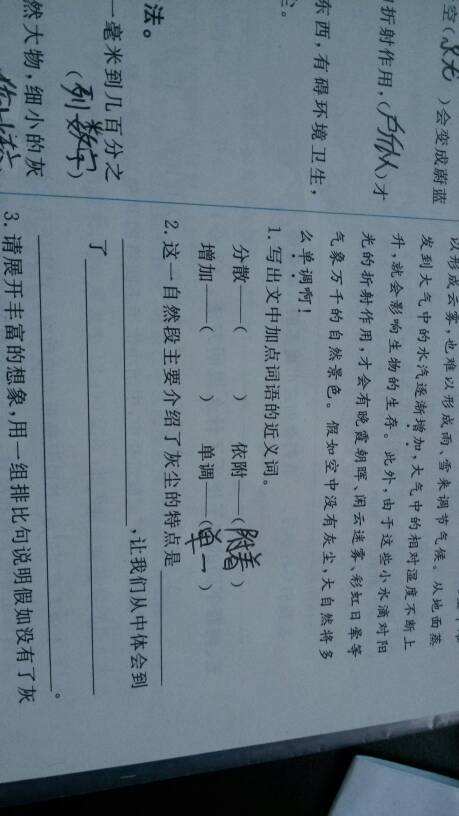 空( )会变成蔚蓝
折射作用,( )才
东西,有碍环境卫生,
法。
一毫米到几百分之
(列数字)
然大物,细小的灰
以形成云雾,也难以形成雨、雪来调节气候、从地面蒸
发到大气中的水汽逐渐增加,大气中的相对湿度不断上
升,就会影响生物的生存。此外,由于这些小水滴对阳
光的折射作用,才会有晚霞朝晖、闲云迷雾、彩虹日晕等
气象万千的自然景色。假如空中没有灰尘,大自然将多
么单调啊!
1.写出文中加点词语的近义词。
分散——( ) 依附——(附着)
增加——( ) 单调——(单一)
2.这一自然段主要介绍了灰尘的特点是
,让我们从中体会到
了 。
3.请展开丰富的想象,用一组排比句说明假如没有了灰